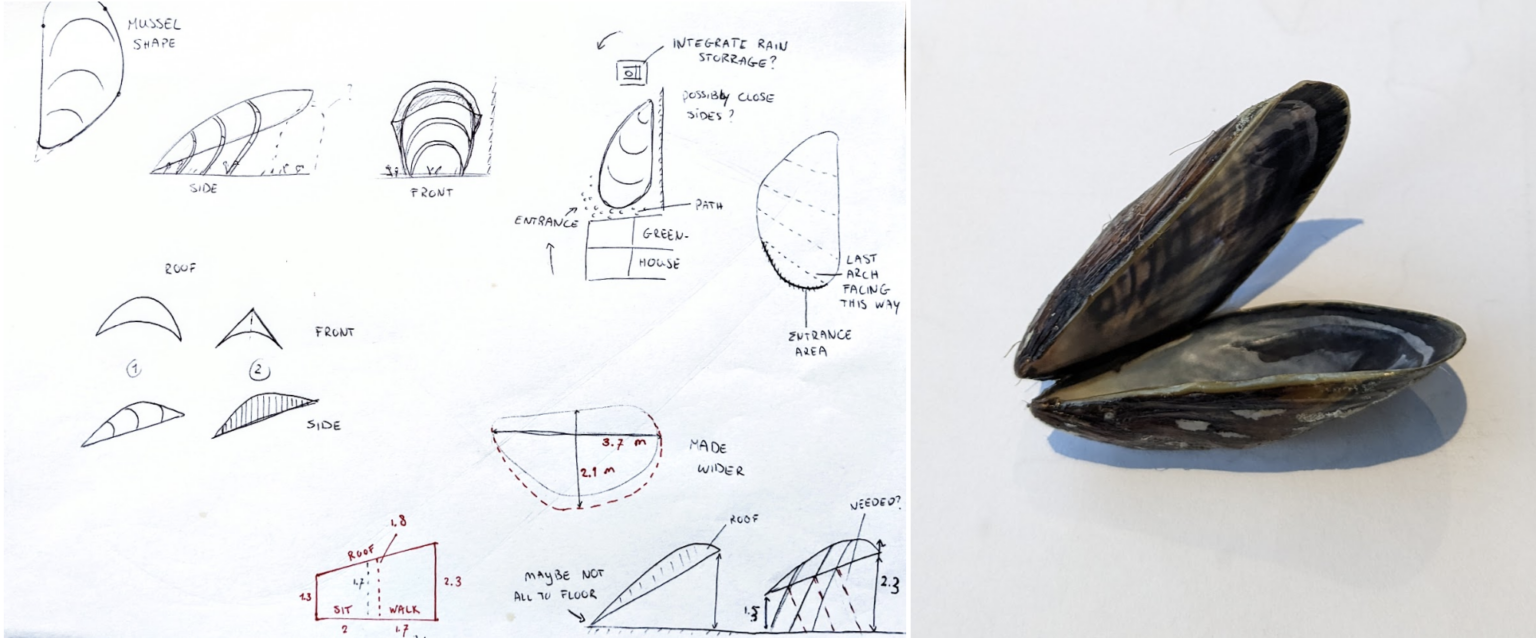 MUSSEL
SHAPE
?
SIDE
FRONT
INTEGRATE RAIN
STORRAGE?
POSSIBLY CLOSE
SIDES?
ENTRANCE
PATH
GREEN-
HOUSE
LAST
ARCH
FACING
THIS WAY
ENTRANCE
AREA
ROOF
FRONT
1
2
SIDE
3.7 m
2.1 m
MADE
WIDER
1,8
ROOF
1.3
1.7
2.3
SIT
WALK
2
1.7
MAYBE NOT
ALL TO FLOOR
ROOF
NEEDED?
2.3